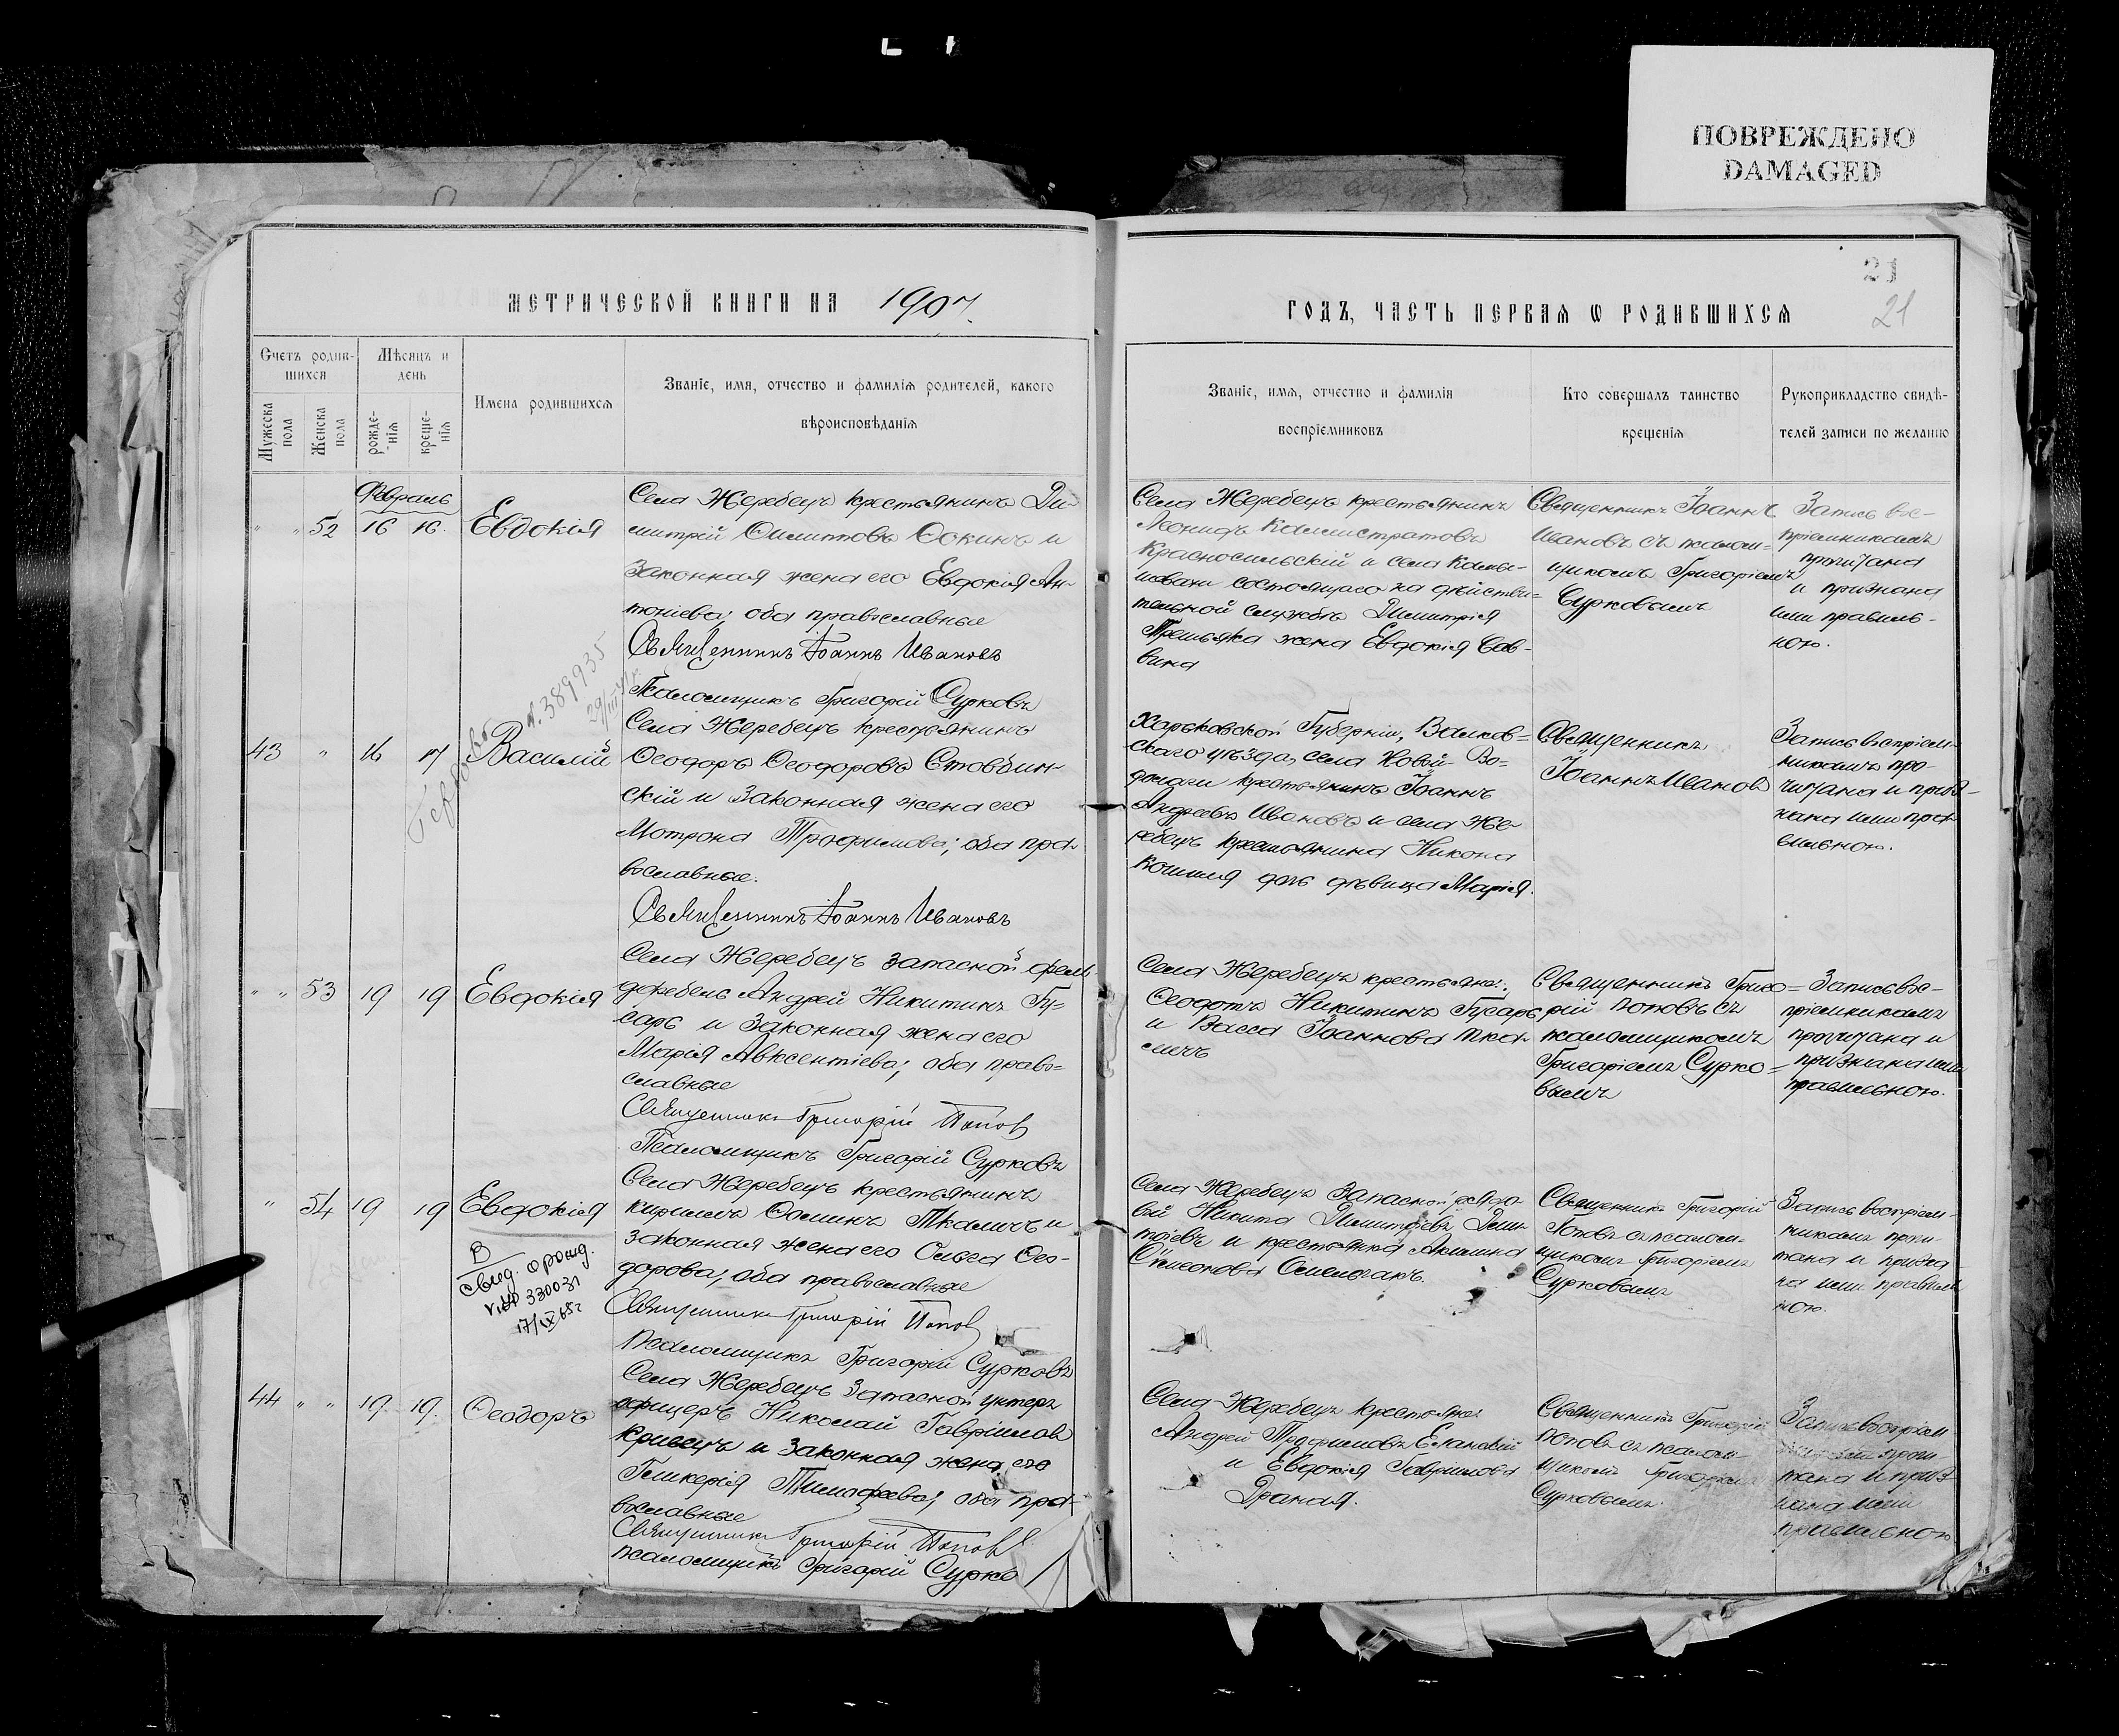 ПОВРЕЖДЕНО
DAMAGED
21
21
МЕТРИЧЕСКОЙ КНИГИ НА 1907
ГОДЪ, ЧАСТЬ ПЕРВАЯ Ѡ РОДИВШИХСЯ
Счетъ родив-
шихся
Мѣсяцъ и
день
Мужеска
пола
Женска
пола
рожде-
нія
креще-
нія
Имена родившихся
Званіе, имя, отчество и фамилія родителей, какого
вѣроисповѣданія
Званіе, имя, отчество и фамилія
воспріемниковъ
Кто совершалъ таинство
крещенія
Рукоприкладство свидѣ-
телей записи по желанію
Февраль
" " 52 16 16. Евдокія
Села Жеребецъ крестьянинъ Ди-
митрій Филипповъ Ѳокинъ и
законная жена его Евдокія Ан-
тоніева; оба православные
Священникъ Іоаннъ Ивановъ
Псаломщикъ Григорій Сурковъ
Села Жеребецъ крестьянинъ
Леонидъ Каллистратовъ
Красносильскій и села Камы-
шевахи состоящаго на дѣйстви-
тельной службѣ Димитрія
жена Евдокія Сав-
вина
Священникъ Іоаннъ
Ивановъ съ псалом-
щикомъ Григоріемъ
Сурковымъ
Запись вос-
пріемникамъ
прочитана
и признана
ими правиль-
ною.
389935
43 " 16 17 Василій
Села Жеребецъ крестьянинъ
Ѳеодоръ Ѳеодоровъ Стовбин-
скій и законная жена его
Мотрона Трофимова; оба пра-
вославные.
Священникъ Іоаннъ Ивановъ
Харьковской Губерніи, Валков-
скаго уѣзда, села Новой Во-
долаги крестьянинъ Іоаннъ
Андреевъ Ивановъ и села Же-
ребецъ крестьянина Никона
дочь дѣвица Марія.
Священникъ
Іоаннъ Ивановъ
Запись воспріем-
никамъ про-
читана и приз-
нана ими пра-
вильною.
" " 53 19 19 Евдокія
Села Жеребецъ запасной фельд-
фебель Андрей Никитинъ Гу-
сарь и законная жена его
Марія Авксентіева; оба право-
славные
Священникъ Григорій Поповъ
Псаломщикъ Григорій Сурковъ
Села Жеребецъ крестьяне:
Ѳеодотъ Никитинъ Гусарь
и Васса Іоаннова Тка-
личъ
Священникъ Григо-
рій Поповъ съ
псаломщикомъ
Григоріемъ Сурко-
вымъ
Запись вос-
пріемникамъ
прочитана и
признана ими
правильною.
" 54 19 19 Евдокія
В
свид. о рожд.
330031
17/IX 65г
Села Жеребецъ крестьянинъ
Кириллъ Ѳоминъ Ткаличъ и
законная жена его Ольга Ѳео-
дорова; оба православные
Священникъ Григорій Поповъ
Псаломщикъ Григорій Сурковъ
Села Жеребецъ запасной рядо-
вой Никита Димитріевъ
и крестьянка Акилина
Симеонова Омельчакъ.
Священникъ Григорій
Поповъ съ псалом-
щикомъ Григоріемъ
Сурковымъ
Запись воспріем-
никамъ прочи-
тана и призна-
на ими правиль-
ною.
44 " " 19 19. Ѳеодоръ
Села Жеребецъ запасной унтеръ
офицеръ Николай Гавріиловъ
Кривецъ и законная жена его
Гликерія Тимофеева; оба пра-
вославные
Священникъ Григорій Поповъ
псаломщикъ Григорій Сурко
Села Жеребецъ крестьяне:
Андрей Трофимовъ
и Евдокія Гавриилова
Драная.
Священникъ Григорій
Поповъ съ псалом-
щикомъ Григоріемъ
Сурковымъ.
Запись воспріем
никамъ прочи
тана и приз-
нана ими
правильною